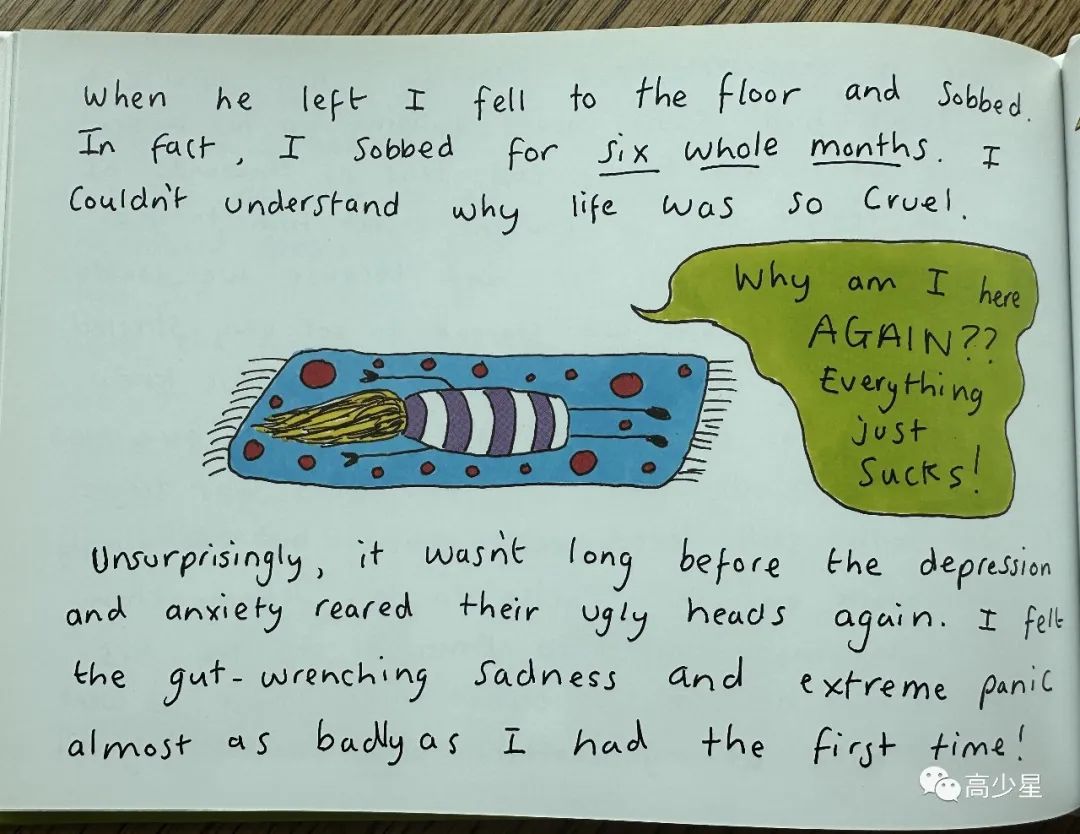 When he left I fell to the floor and sobbed.
In fact, I sobbed for six whole months. I
couldn't understand why life was so cruel.
Why am I here
AGAIN??
Everything
just
sucks!
Unsurprisingly, it wasn't long before the depression
and anxiety reared their ugly heads again. I felt
the gut-wrenching sadness and extreme panic
almost as badly as I had the first time!
高少星